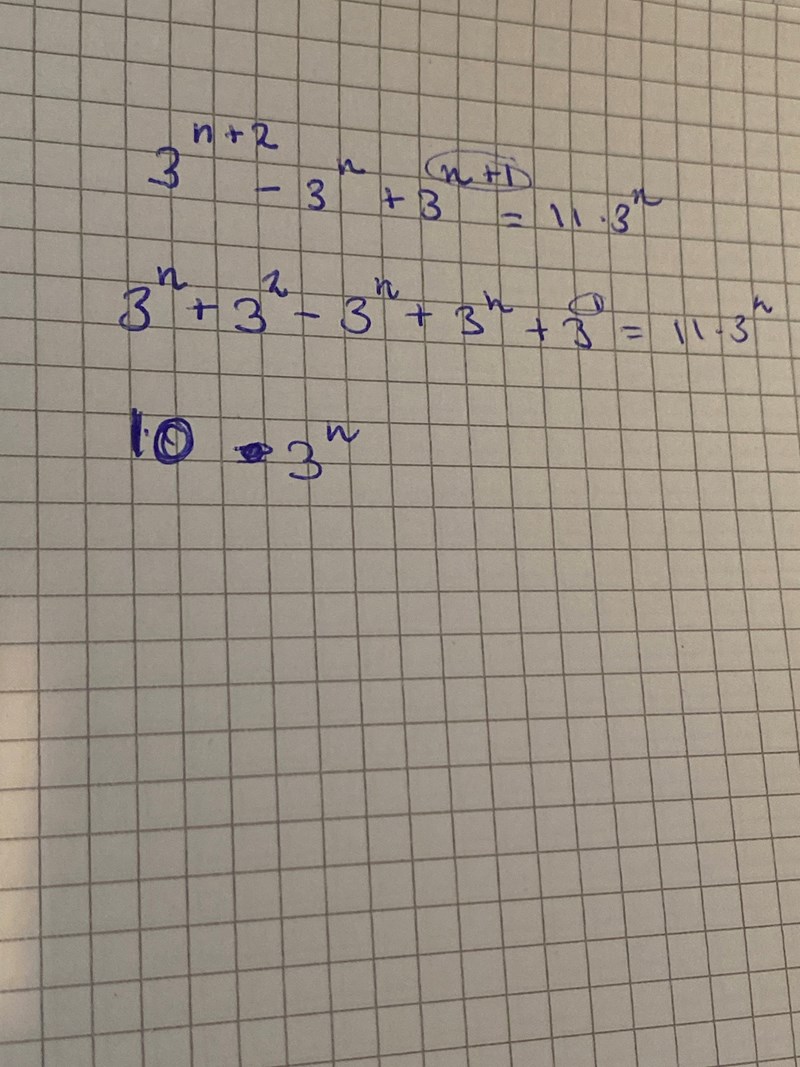 3^{n+2} - 3^n + 3^{n+1} = 11 · 3^n
3^n + 3^2 - 3^n + 3^n + 3^1 = 11 · 3^n
10 · 3^n